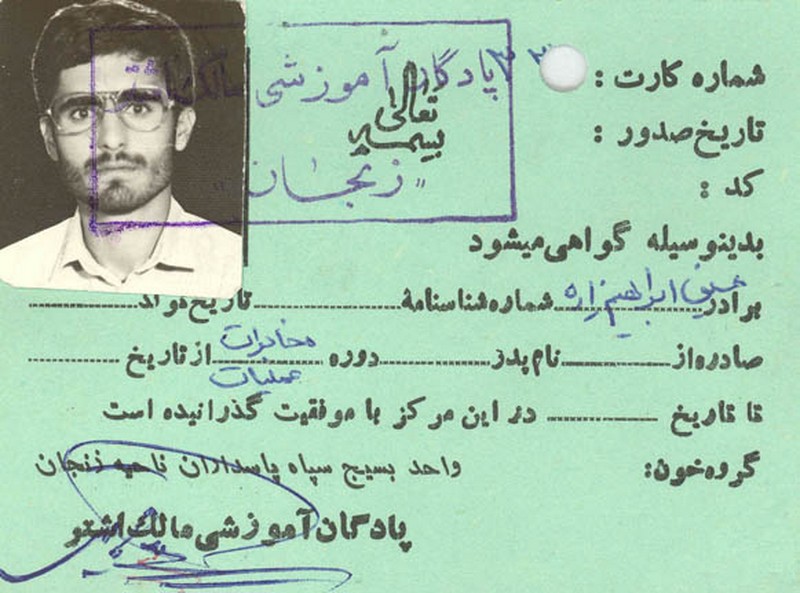 بسمه تعالی
پادگان آموزشی مالک اشتر
"زنجان"
شماره کارت :
تاریخ صدور :
کد :
بدینوسیله گواهی میشود
برادر ابراهیم زاده شماره شناسنامهٔ تاریخ تولد
صادره از نام پدر دوره مخابرات عملیات از تاریخ
تا تاریخ در این مرکز با موفقیت گذرانیده است
گروه خون: واحد بسیج سپاه پاسداران ناحیه زنجان
پادگان آموزشی مالک اشتر